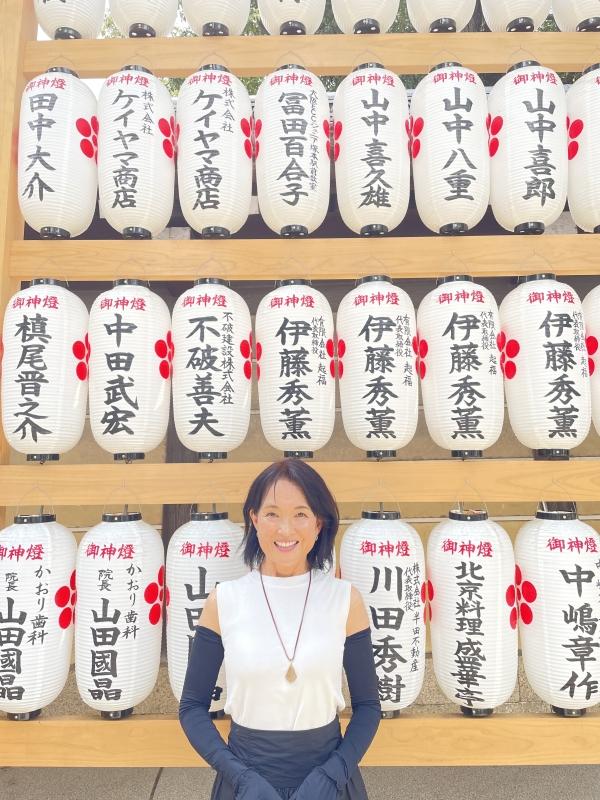 御神燈
田中大介
御神燈
株式会社
ケイヤマ商店
御神燈
株式会社
ケイヤマ商店
御神燈
冨田百合子
御神燈
山中喜久雄
御神燈
山中八重
御神燈
山中喜郎
御神燈
槙尾晋之介
御神燈
中田武宏
御神燈
不破建設株式会社
不破善夫
御神燈
有限会社 起福
代表取締役
伊藤秀薫
御神燈
有限会社 起福
代表取締役
伊藤秀薫
御神燈
有限会社 起福
代表取締役
伊藤秀薫
御神燈
有限会社 起福
代表取締役
伊藤秀薫
御神燈
かおり歯科
院長
山田國晶
御神燈
かおり歯科
院長
山田國晶
御神燈
山
御神燈
株式会社 半田不動産
代表取締役
川田秀樹
御神燈
北京料理
盛華亭
御神燈
中嶋章作